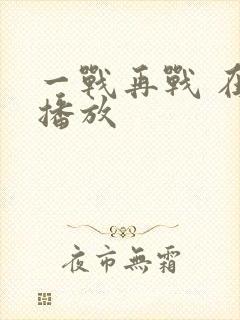 一戰再戰
播放
夜市無霜